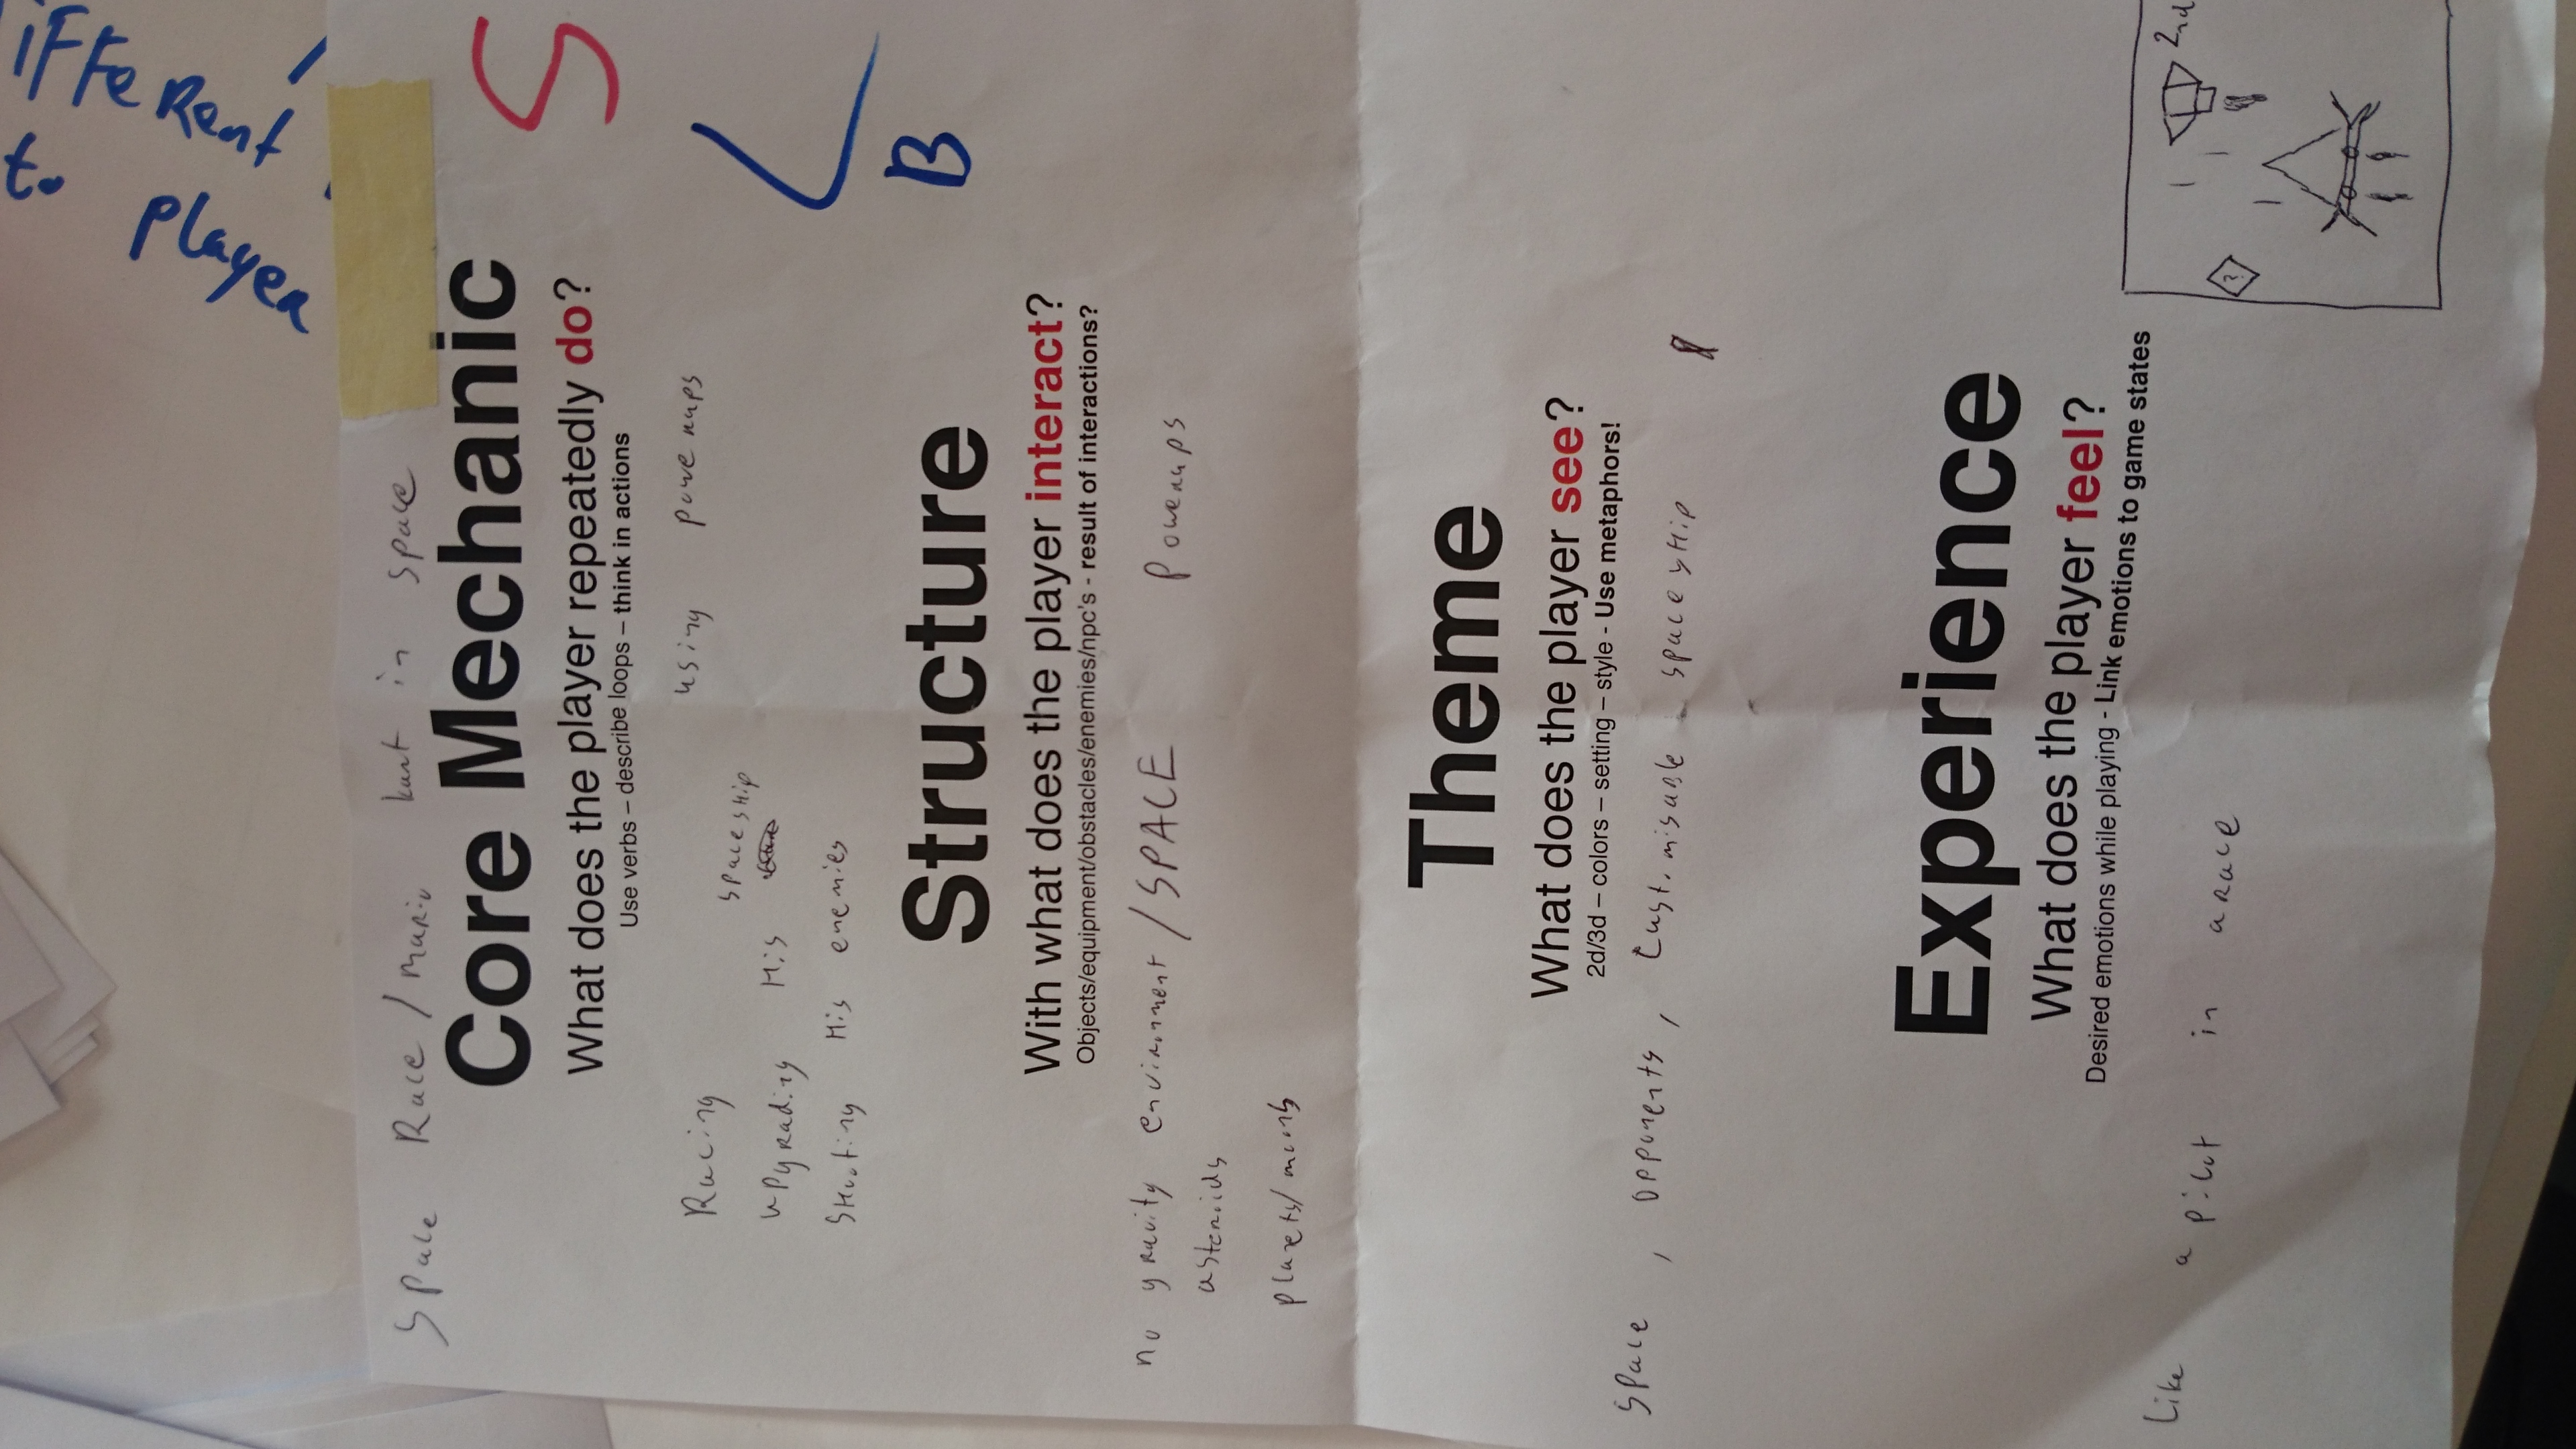 iFFeRent
to player
S
B
Space Race / Mario kart in space
Core Mechanic
What does the player repeatedly do?
Use verbs – describe loops – think in actions
Racing using powerups
spaceship
upgrading His
Shooting His enemies
Structure
With what does the player interact?
Objects/equipment/obstacles/enemies/npc's - result of interactions?
no gravity environment / SPACE Powerups
asteroids
planets/moons
Theme
What does the player see?
2d/3d – colors – setting – style - Use metaphors!
Space, opponents, Customisable spaceship
Experience
What does the player feel?
Desired emotions while playing - Link emotions to game states
Like a pilot in a race
2nd
?